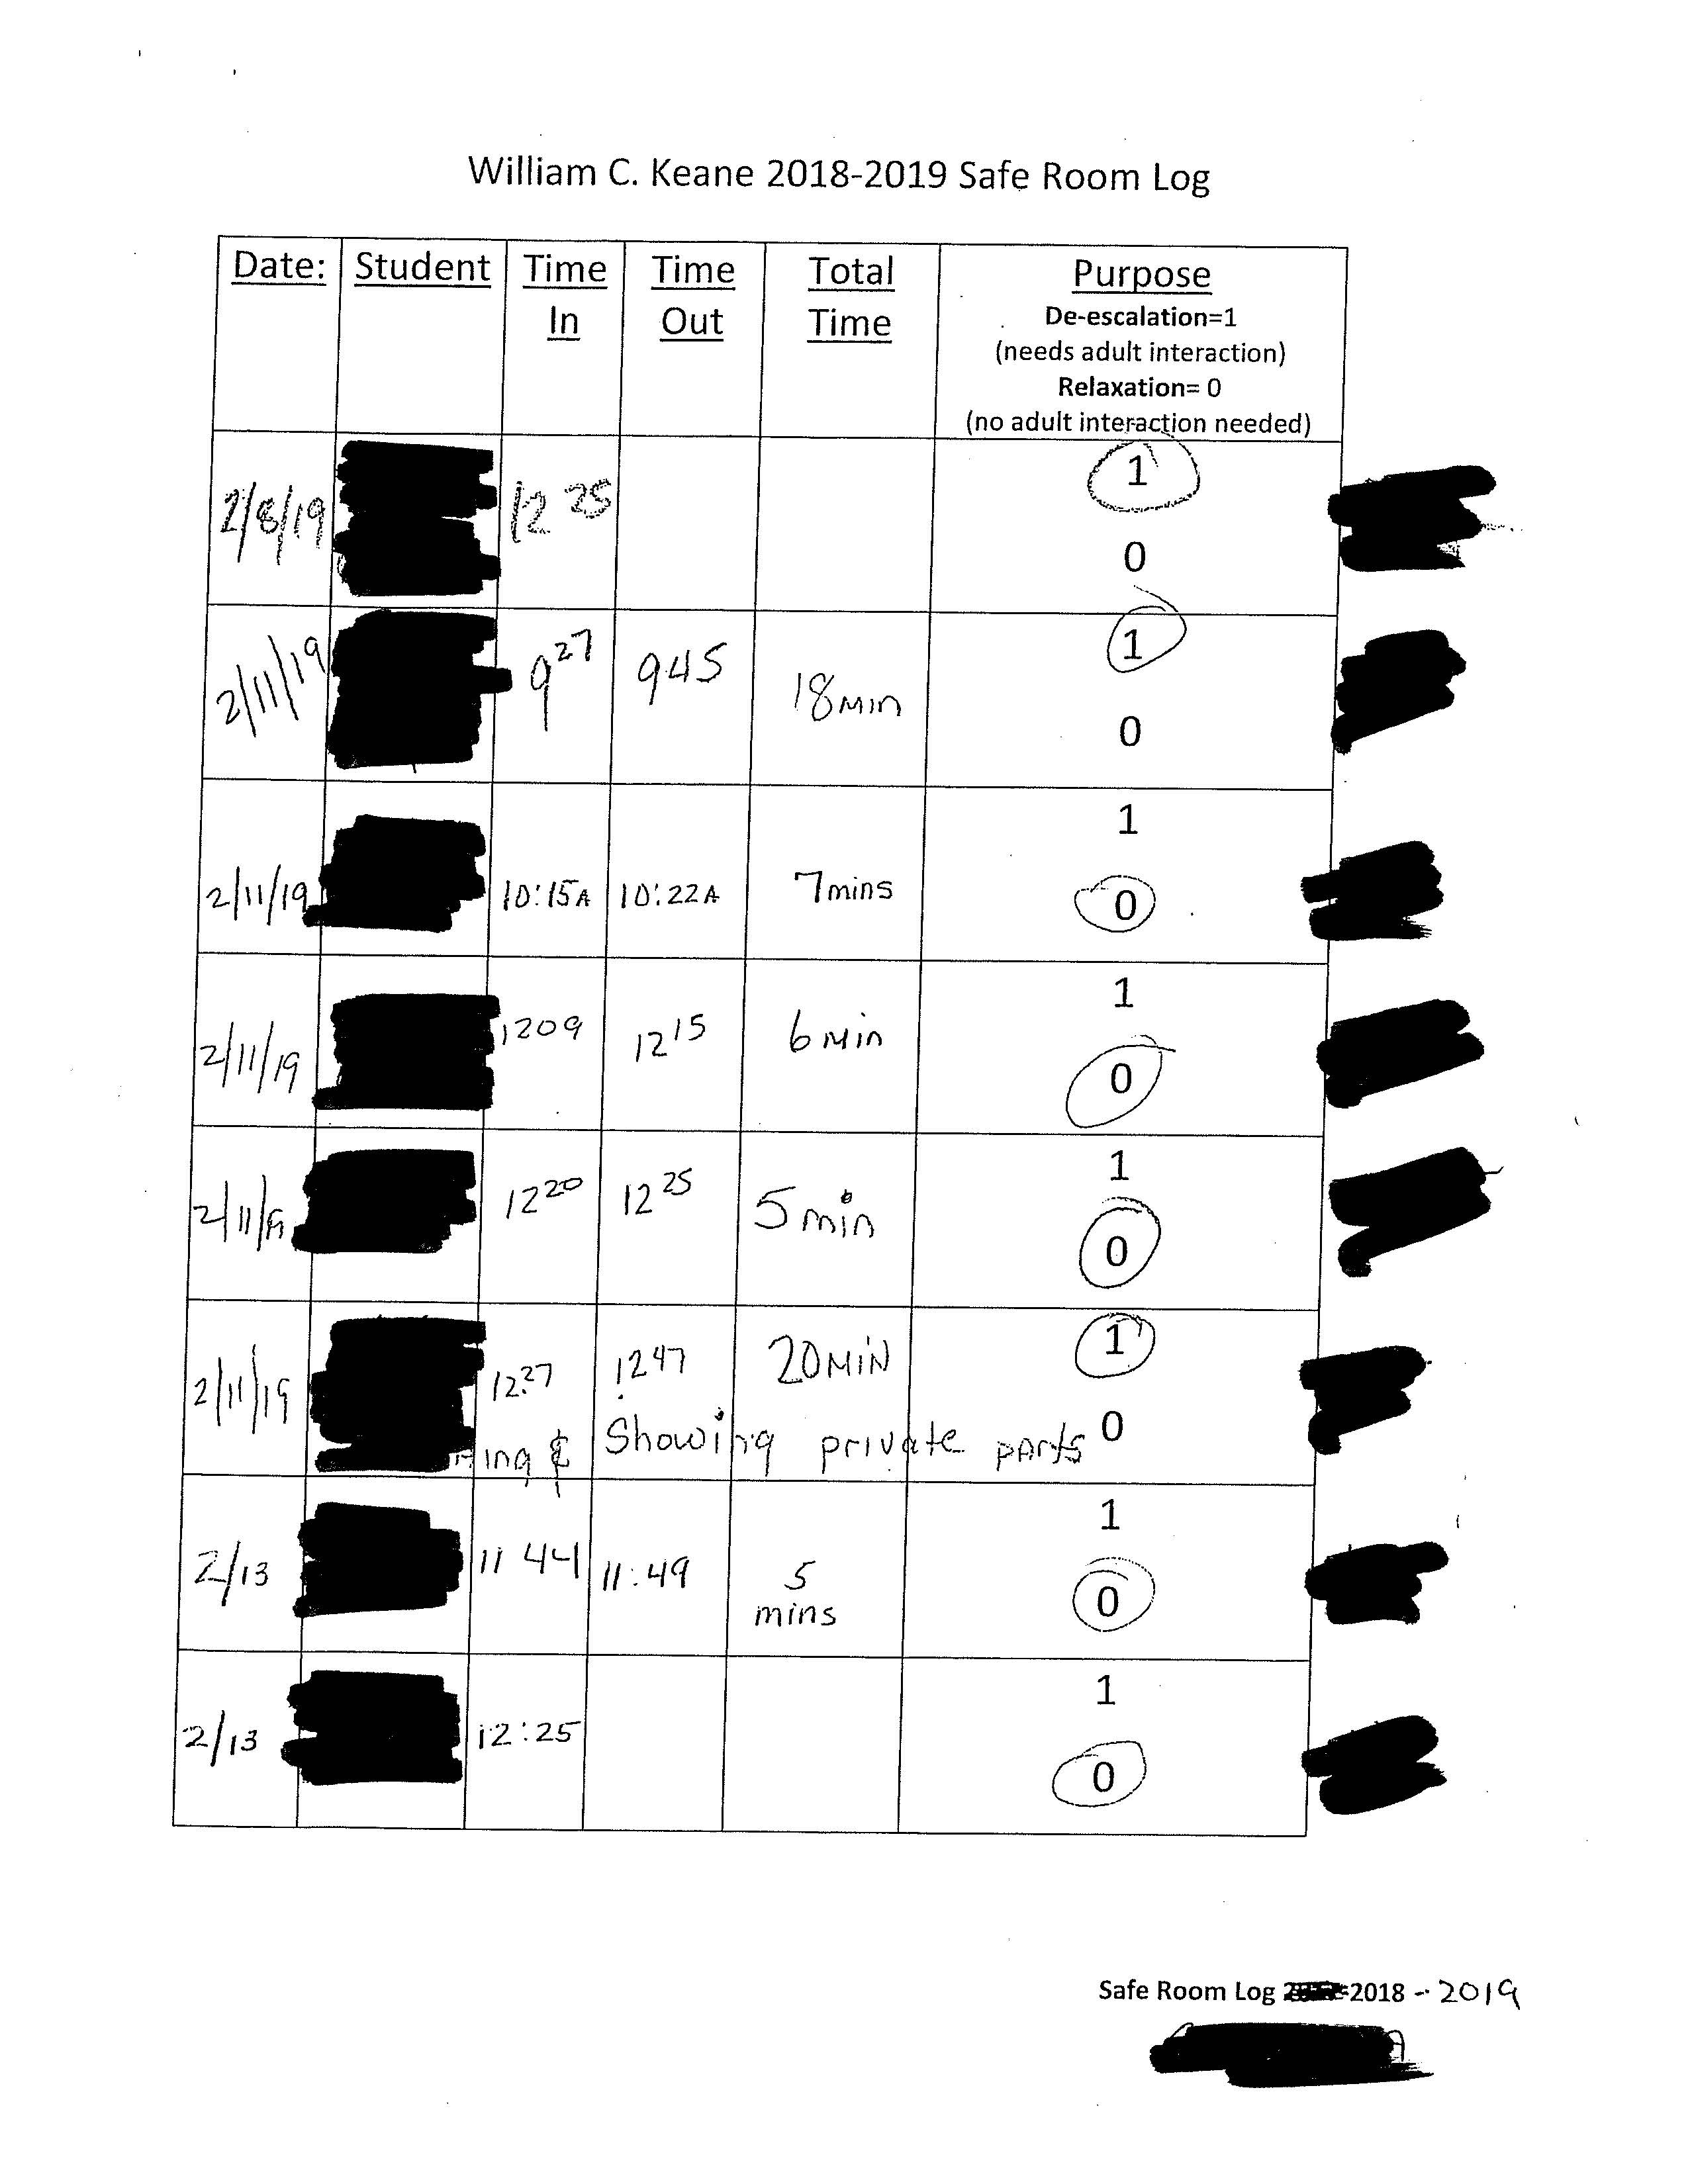 William C. Keane 2018-2019 Safe Room Log
Date: Student Time In Time Out Total Time Purpose
De-escalation=1
(needs adult interaction)
Relaxation= 0
(no adult interaction needed)
2/8/19 12 25 1
0
2/11/19 9 27 945 18 min 1
0
2/11/19 10:15A 10:22A 7 mins 1
0
2/11/19 1209 12 15 6 min 1
0
2/11/19 12 20 12 25 5 min 1
0
2/11/19 12:27 12 47 20 MIN 1
0
& Showing private parts
2/13 11 44 11:49 5 mins 1
0
2/13 12:25 1
0
Safe Room Log 2018 - 2019